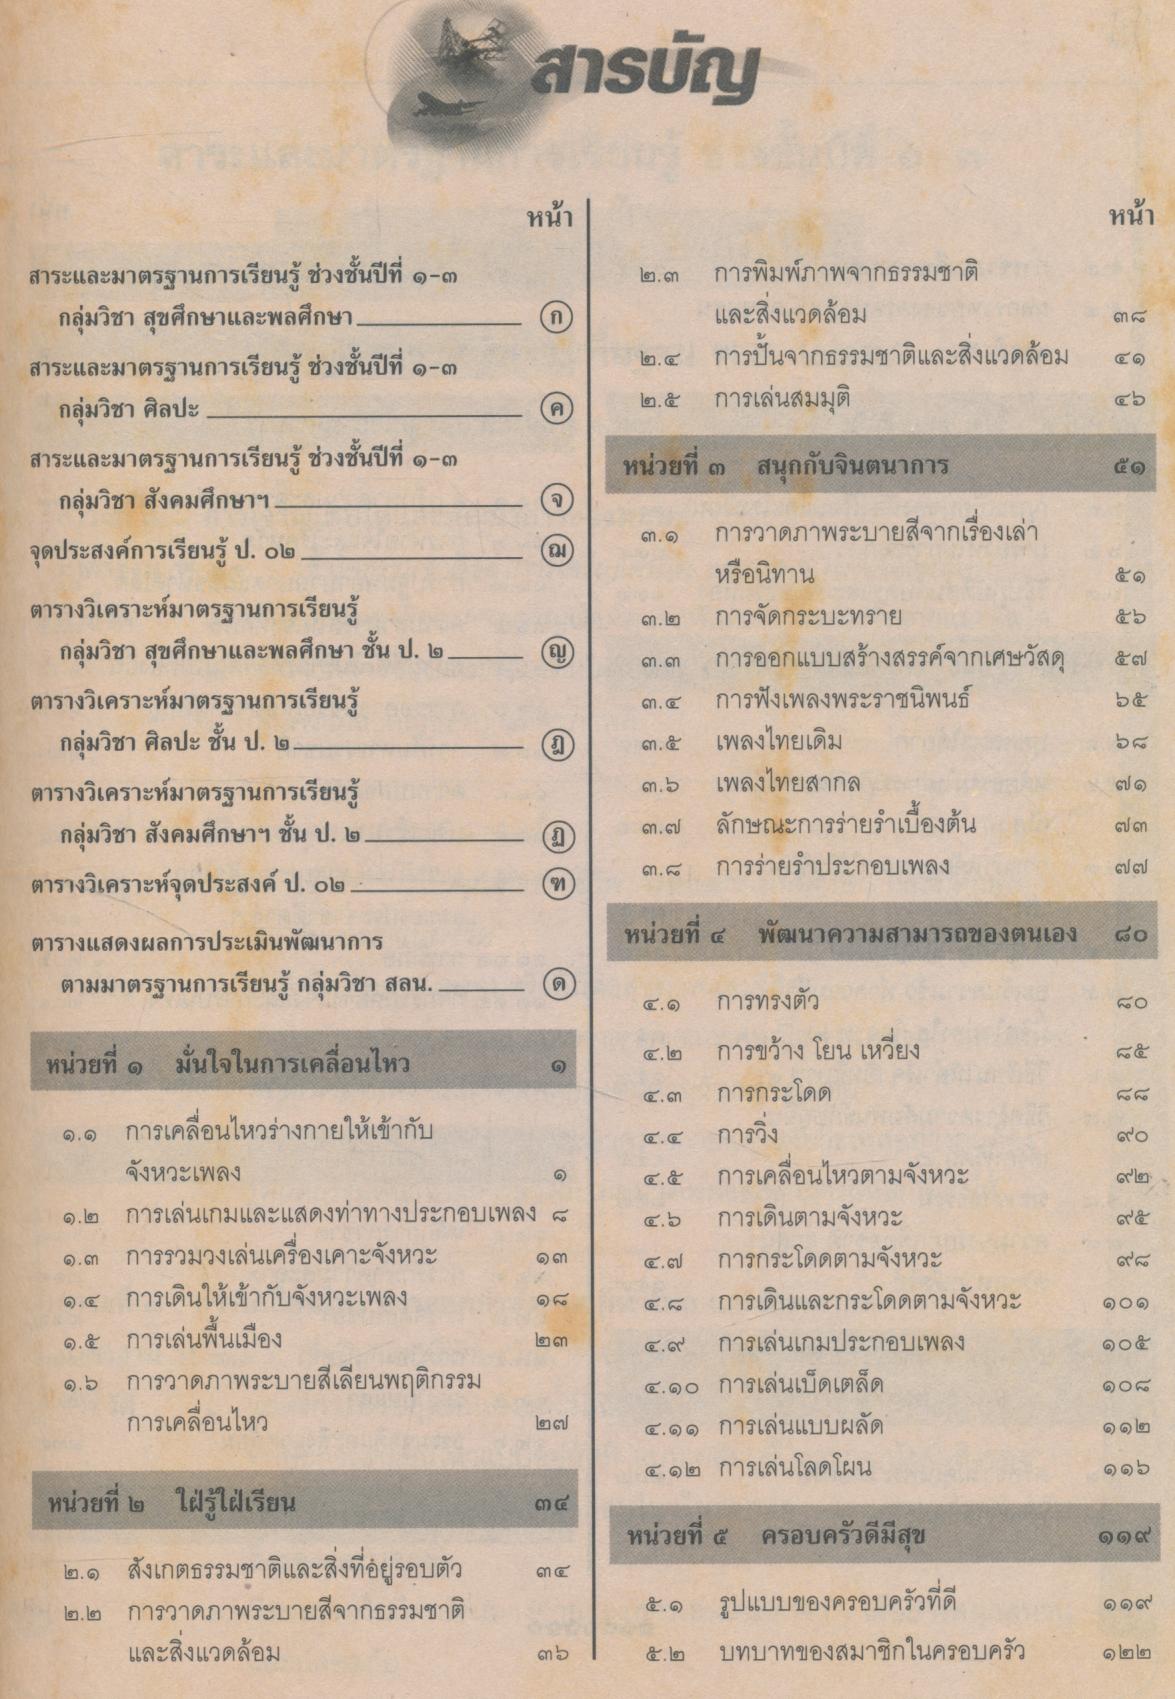 สารบัญ
หน้า
สาระและมาตรฐานการเรียนรู้ ช่วงชั้นปีที่ ๑-๓
กลุ่มวิชา สุขศึกษาและพลศึกษา ก
สาระและมาตรฐานการเรียนรู้ ช่วงชั้นปีที่ ๑-๓
กลุ่มวิชา ศิลปะ ค
สาระและมาตรฐานการเรียนรู้ ช่วงชั้นปีที่ ๑-๓
กลุ่มวิชา สังคมศึกษาฯ จ
จุดประสงค์การเรียนรู้ ป. ๐๒ ฌ
ตารางวิเคราะห์มาตรฐานการเรียนรู้
กลุ่มวิชา สุขศึกษาและพลศึกษา ชั้น ป. ๒ ญ
ตารางวิเคราะห์มาตรฐานการเรียนรู้
กลุ่มวิชา ศิลปะ ชั้น ป. ๒ ฎ
ตารางวิเคราะห์มาตรฐานการเรียนรู้
กลุ่มวิชา สังคมศึกษาฯ ชั้น ป. ๒ ฏ
ตารางวิเคราะห์จุดประสงค์ ป. ๐๒ ฑ
ตารางแสดงผลการประเมินพัฒนาการ
ตามมาตรฐานการเรียนรู้ กลุ่มวิชา สลน. ด
หน่วยที่ ๑ มั่นใจในการเคลื่อนไหว ๑
๑.๑ การเคลื่อนไหวร่างกายให้เข้ากับ
จังหวะเพลง ๑
๑.๒ การเล่นเกมและแสดงท่าทางประกอบเพลง ๘
๑.๓ การรวมวงเล่นเครื่องเคาะจังหวะ ๑๓
๑.๔ การเดินให้เข้ากับจังหวะเพลง ๑๘
๑.๕ การเล่นพื้นเมือง ๒๓
๑.๖ การวาดภาพระบายสีเลียนพฤติกรรม
การเคลื่อนไหว ๒๗
หน่วยที่ ๒ ใฝ่รู้ใฝ่เรียน ๓๔
๒.๑ สังเกตธรรมชาติและสิ่งที่อยู่รอบตัว ๓๔
๒.๒ การวาดภาพระบายสีจากธรรมชาติ
และสิ่งแวดล้อม ๓๖
หน้า
๒.๓ การพิมพ์ภาพจากธรรมชาติ
และสิ่งแวดล้อม ๓๘
๒.๔ การปั้นจากธรรมชาติและสิ่งแวดล้อม ๔๑
๒.๕ การเล่นสมมุติ ๔๖
หน่วยที่ ๓ สนุกกับจินตนาการ ๕๑
๓.๑ การวาดภาพระบายสีจากเรื่องเล่า
หรือนิทาน ๕๑
๓.๒ การจัดกระบะทราย ๕๖
๓.๓ การออกแบบสร้างสรรค์จากเศษวัสดุ ๕๗
๓.๔ การฟังเพลงพระราชนิพนธ์ ๖๕
๓.๕ เพลงไทยเดิม ๖๘
๓.๖ เพลงไทยสากล ๗๑
๓.๗ ลักษณะการร่ายรำเบื้องต้น ๗๓
๓.๘ การร่ายรำประกอบเพลง ๗๗
หน่วยที่ ๔ พัฒนาความสามารถของตนเอง ๘๐
๔.๑ การทรงตัว ๘๐
๔.๒ การขว้าง โยน เหวี่ยง ๘๕
๔.๓ การกระโดด ๘๘
๔.๔ การวิ่ง ๙๐
๔.๕ การเคลื่อนไหวตามจังหวะ ๙๒
๔.๖ การเดินตามจังหวะ ๙๕
๔.๗ การกระโดดตามจังหวะ ๙๘
๔.๘ การเดินและกระโดดตามจังหวะ ๑๐๑
๔.๙ การเล่นเกมประกอบเพลง ๑๐๕
๔.๑๐ การเล่นเบ็ดเตล็ด ๑๐๘
๔.๑๑ การเล่นแบบผลัด ๑๑๒
๔.๑๒ การเล่นโลดโผน ๑๑๖
หน่วยที่ ๕ ครอบครัวดีมีสุข ๑๑๙
๕.๑ รูปแบบของครอบครัวที่ดี ๑๑๙
๕.๒ บทบาทของสมาชิกในครอบครัว ๑๒๒